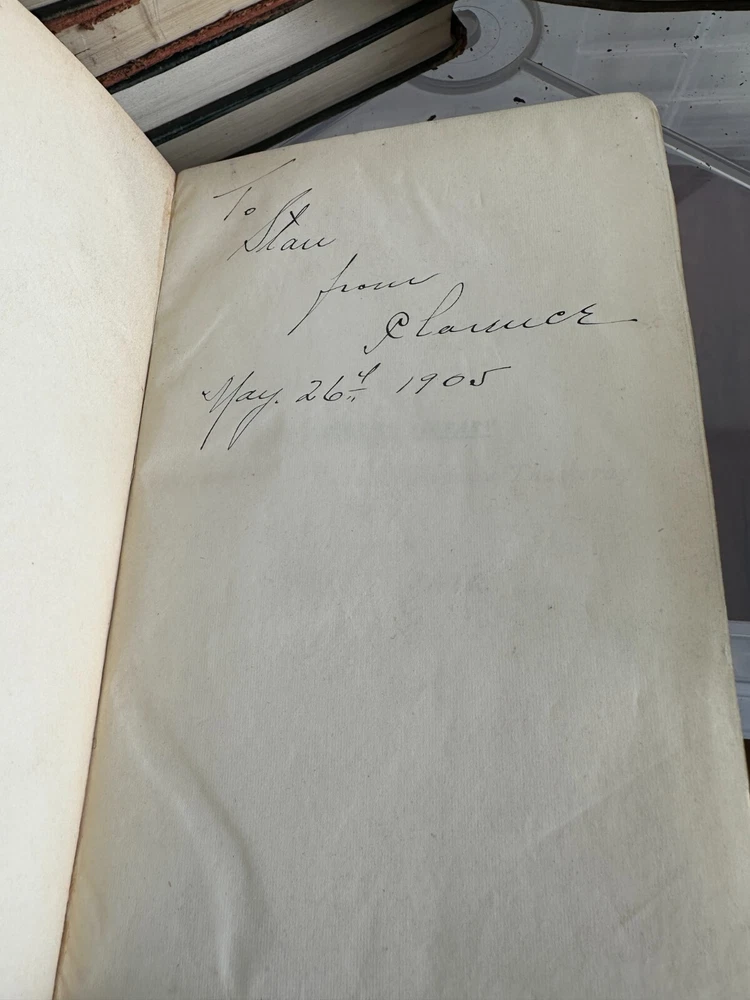 To
Starr
from
Clarence
May. 26th 1905